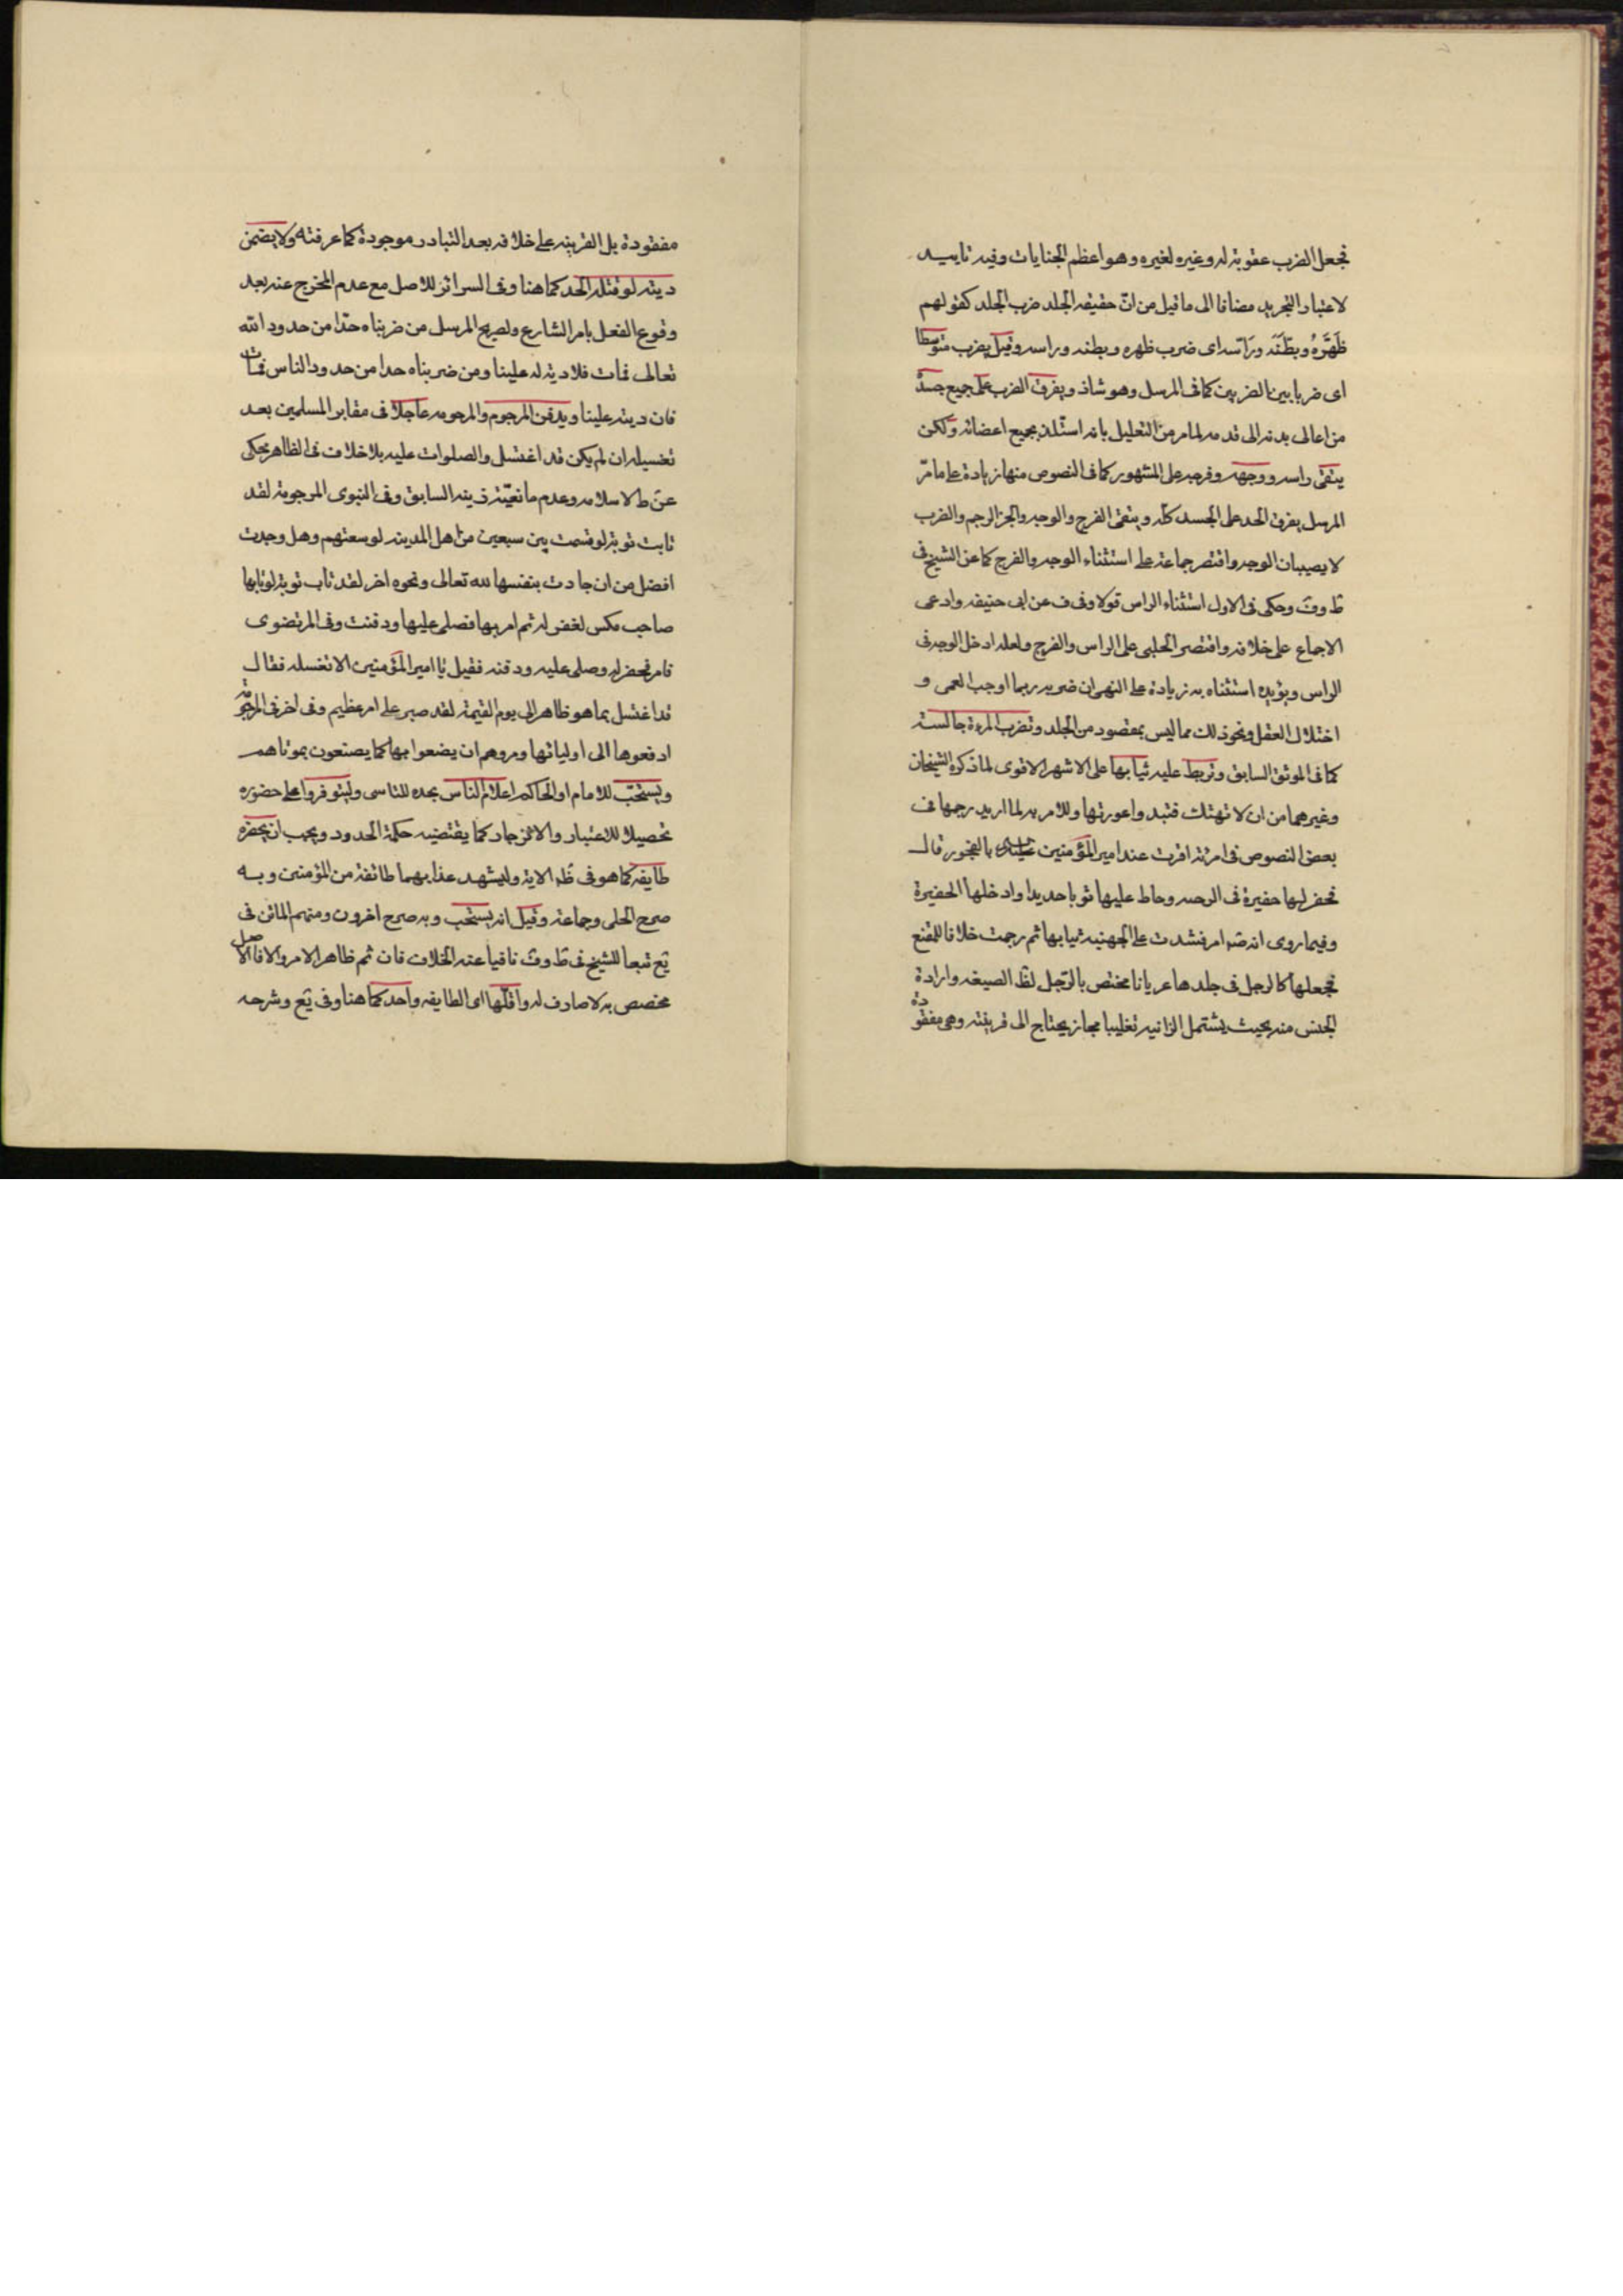 فجعل الضرب عقوبة له وغيره لغيره وهو اعظم الجنايات وفيه تاييد
لاعتبار التجريد مضافا الى ما قيل من انّ حقيقه الجلد ضرب الجلد كقولهم
ظَهَّرَهُ وبطّنَه ورَاسّه اى ضرب ظهره وبطنه وراسه وقيل يضرب متوسطا
اى ضربا بين الضربين كما فى المرسل وهو شاذ ويفرق الضرب على جميع جسده
من اعالى بدنه الى قدمه لما مر من التعليل بانه استلذ بجميع اعضائه ولكن
يتقى راسه ووجهه وفرجه على المشهور كما فى النصوص منها زيادة على ما مرّ
المرسل يفرق الحد على الجسد كله ويتقى الفرج والوجه والخبر الرجم والضرب
لا يصيبان الوجه واقتصر جماعة على استثناء الوجه والفرج كما عن الشيخ فى
ط وفَ وحكى فى الاول استثناء الراس قولا وفى ف عن ابى حنيفه وادعى
الاجماع على خلافه واقتصر الحلبى على الراس والفرج ولعله ادخل الوجه فى
الراس ويؤيده استثناه به زيادة على النهى ان ضربه ربما اوجب العمى و
اختلال العقل ونحو ذلك مما ليس بمقصود من الجلد وتضرب المرءة جالسة
كما فى الموثق السابق وتربط عليه ثيابها على الاشهر الاقوى لما ذكره الشيخان
وغيرهما من ان لا تهتك فتبدوا عورتها وللامر به لما اريد رجمها فى
بعض النصوص فى امرئة اقرت عند امير المؤمنين بالفجور قال
فحفر لها حفيرة فى الرحبه وخاط عليها ثوبا جديدا وادخلها الحفيرة
وفيما روى انه ص امر فشدت على الجهنيه ثيابها ثم رجمت خلافا للمقنع
فجعلها كالرجل فى جلدها عريانا مختص بالرّجل لظ الصيغه وارادة
الجنس منه بحيث يشتمل الزانيه تغليبا مجاز يحتاج الى قرينة وهى مفقودة
مفقودة بل القرينه على خلافه بعد التبادر موجودة كما عرفته ولا يضمن
ديته لو قتله الحد كما هنا وفى السرائر للاصل مع عدم المخرج عنه بعد
وقوع الفعل بامر الشارع ولصريح المرسل من ضربناه حدّا من حدود الله
تعالى فمات فلا دية له علينا ومن ضربناه حدا من حدود الناس فمات
فان ديته علينا ويدفن المرجوم والمرجومه عاجلا فى مقابر المسلمين بعد
تغسيله ان لم يكن قد اغتسل والصلوات عليه بلا خلاف فى الظاهر يحكى
عن ط الاسلام وعدم مانعيّة زينه السابق وفى النبوى المرجومة لقد
تابت توبة لو قسمت بين سبعين من اهل المدينه لوسعتهم وهل وجدت
افضل من ان جادت بنفسها لله تعالى ونحوه اخر لقد تاب توبة لو تابها
صاحب مكس لغفر له ثم امر بها فصلى عليها ودفنت وفى المرتضوى
فامر فحفر له وصلى عليه ودفنه فقيل يا امير المؤمنين الا تغسله فقال
قد اغتسل بما هو ظاهر الى يوم القيمة لقد صبر على امر عظيم وفى اخر فى المرجومة
ادفعوها الى اوليائها ومروهم ان يضعوا بها كما يصنعون بموتاهم
ويستحبّ للامام او الحاكم اعلام الناس بحده للتاسى وليتوفروا على حضوره
تحصيلا للاعتبار والانزجار كما يقتضيه حكمة الحدود ويجب ان يحضره
طايفه كما هو فى ظه الاية وليشهد عذابهما طائفة من المؤمنين وبه
صرح الحلى وجماعة وقيل انه يستحب وبه صرح اخرون ومنهم الماتن فى
يع تبعا للشيخ فى ط وفَ نافيا عنه الخلاف فان ثم ظاهر الامر والا فالاصل
مخصص به لا صارف له واقلّها اى الطايفه واحد كما هنا وفى يع وشرحه